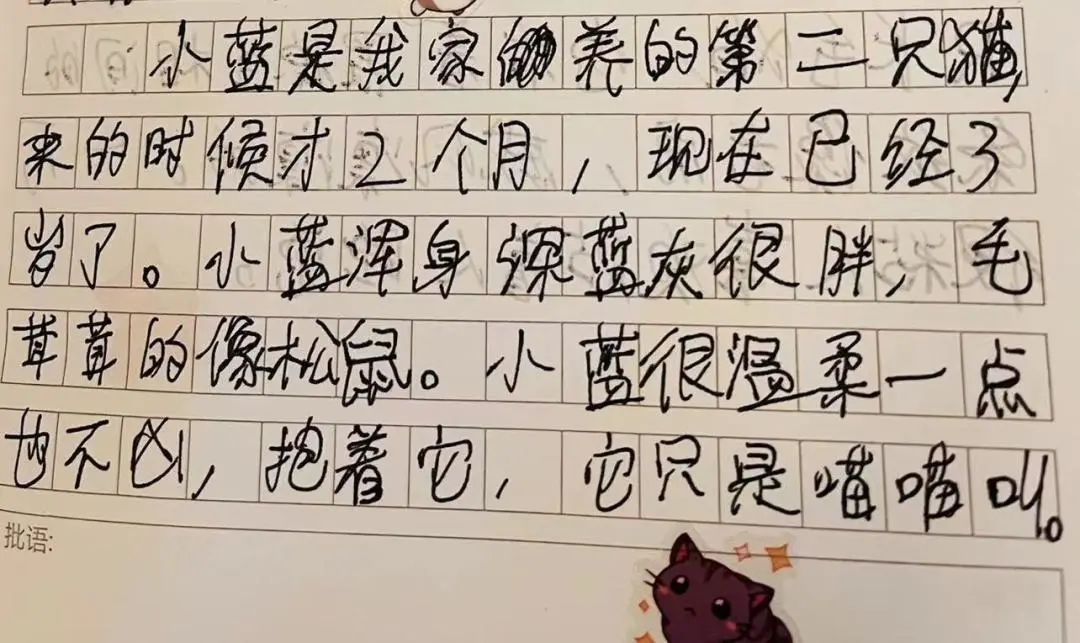 小蓝是我家养的第二只猫,
来的时候才2个月，现在已经3
岁了。小蓝浑身深蓝灰很胖，毛
茸茸的像松鼠。小蓝很温柔一点
也不凶，抱着它，它只是喵喵叫。
批语: